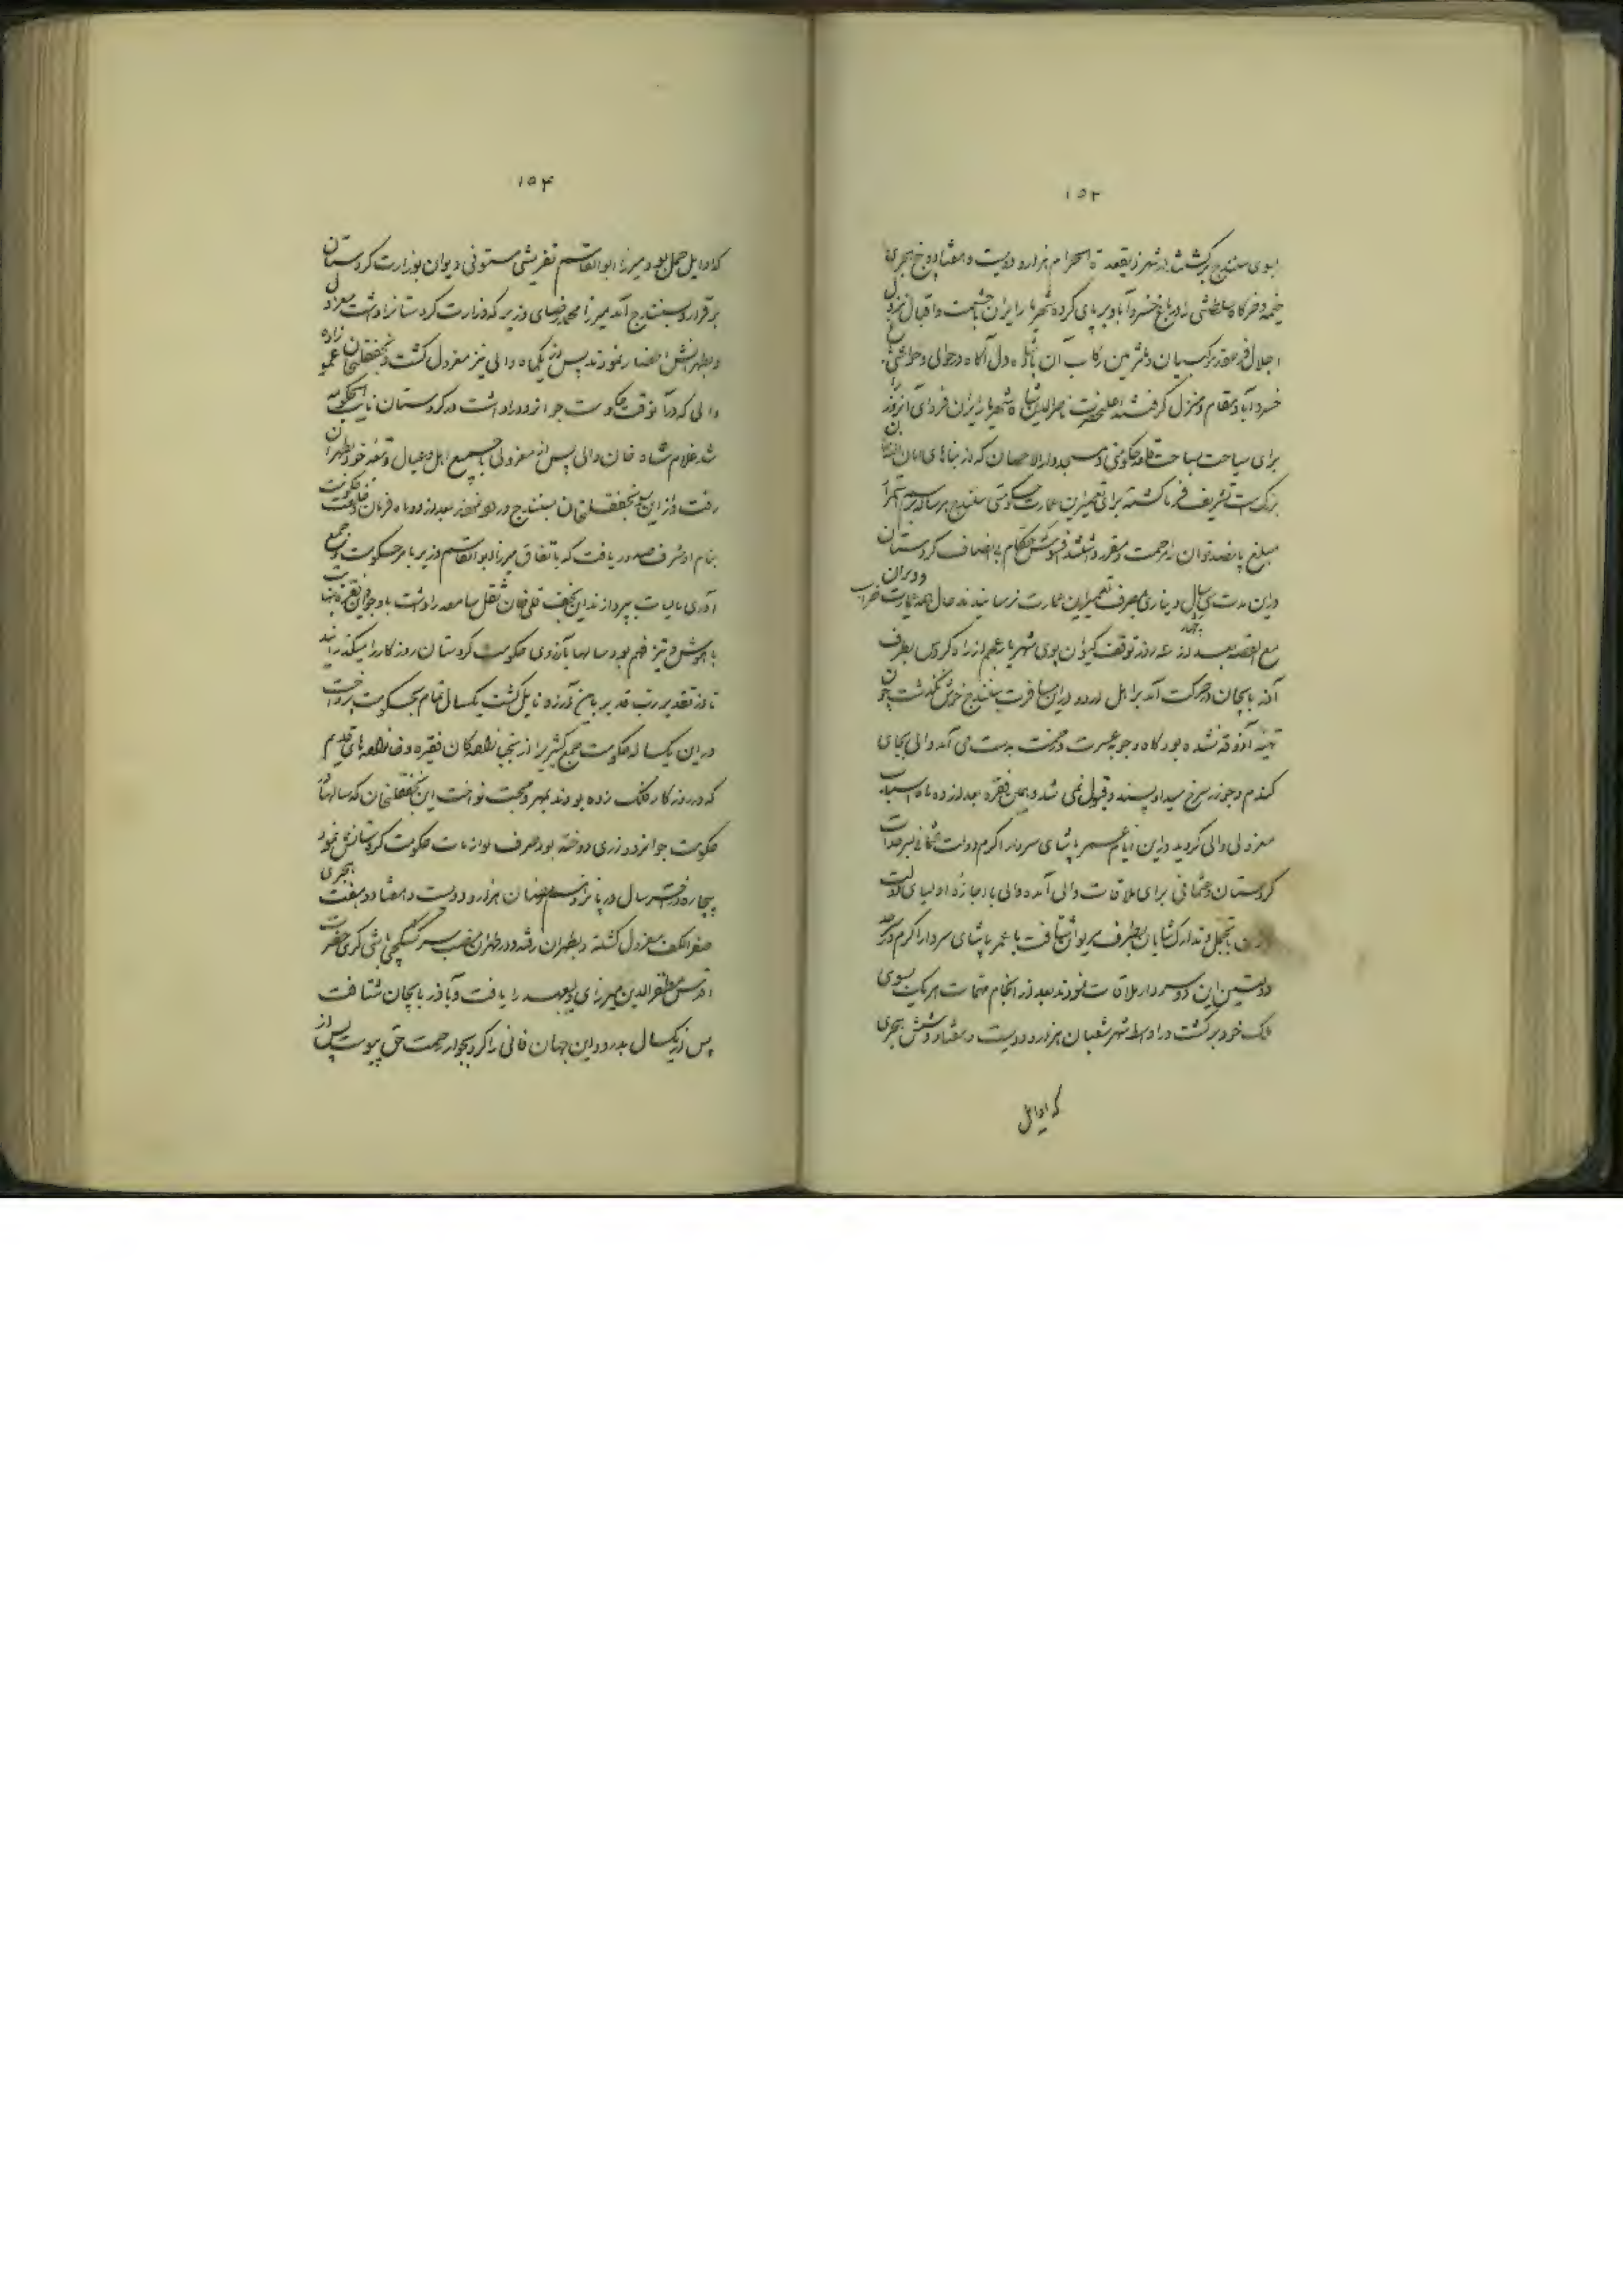 ۱۵۳
بسوی سنندج برگشت در شهر ذیقعدة الحرام هزار و دویست و هفتاد و پنج هجری
خیمه و خرگاه سلطنتی را در باغ خسروآباد بر پای کرده شهریار ایران با حشمت و اقبال نزول
اجلال فرمود موکبیان و ملتزمین رکاب آن پادشاه دل آگاه در حوالی و حواشی باغ
خسرو آباد مقام و منزل گرفتند اعلیحضرت ناصرالدین شاه شهریار ایران فردای آنروز
برای سیاحت بساحت قلعه حکومتی و مسجد دار الاحسان که از بناهای امان الله خان
بزرگ است تشریف فرما گشته برای تعمیر این عمارت حکومتی سنندج هر ساله برسم استمرار
مبلغ پانصد تومان مرحمت و مقرر داشتند حکام بی انصاف کردستان
در این مدت سی سال دیناری بمصرف تعمیر این عمارت نرسانیدند حال همه عمارت خراب و ویران
مع القصه بعد از سه روز توقف بجاه کیوان پوی شهریار عجم از راه گروس بطرف
آذربایجان در حرکت آمد بر اهل اردو در این مسافرت سنندج خوش نگذشت چون
تهیه آذوقه نشده بود کاه و جو بعسرت و زحمت بدست می آمد والی بجای
گندم و جو زر سرخ میداد پسند و قبول نمی شد و همین فقره بعد از ده ماه اسباب
معزولی والی گردید در این ایام عمر پاشای سردار اکرم دولت عثمانی بسرحدات
کردستان و عثمانی برای ملاقات والی آمده والی با اجازه اولیای دولت
با تجمل و تدارک شایان بطرف مریوان شتافت با عمر پاشای سردار اکرم در سرحد
دولتین این دو سردار ملاقات نمودند بعد از انجام مهمات هر یک بسوی
ملک خود برگشت در اواسط شهر شعبان هزار و دویست و هفتاد و شش هجری
که اوایل
۱۵۴
که اوایل حمل بود میرزا ابوالقاسم تفریشی مستوفی دیوان بوزارت کردستان
برقرار و بسنندج آمد میرزا محمد رضای وزیر که وزارت کردستانرا داشت معزول
و بطهرانش احضار نمودند پس از یکماه والی نیز معزول گشت و نجفقلیخان عمو زاده
والی که در آنوقت حکومت جوانرود را داشت در کردستان نایب الحکومه
شد غلامشاه خان والی پس از معزولی با جمیع اهل و عیال و تبعه خود بطهران
رفت و از این سو نجفقلیخان بسنندج وارد شد بعد از دو ماه فرمان و خلعت حکومت
بنام او شرف صدور یافت که باتفاق میرزا ابوالقاسم وزیر بامر حکومت و جمع
آوری مالیات بپردازند این نجف قلی خان ثقل سامعه را داشت با وجود این فقره بینهایت
با هوش و تیز فهم بود سالها بآرزوی حکومت کردستان روزگار را میگذرانید
تا از تقدیر رب قدیر باین آرزو نایل گشت یکسال تمام بحکومت پرداخت
در این یکساله حکومت جمع کثیریرا از نجبا زادهگان فقیره و خانواده های قدیم
که در روزگار فلک زده بودند بمهر و محبت نواخت این نجفقلیخان که سالها از
حکومت جوانرود زری دوخته بود صرف لوازمات حکومت کردستانش نمود
بیچاره در آخر سال در پانزدهم رمضان هزار و دویست و هفتاد و هفت هجری
صفر الکف معزول گشته و بطهران رفته و در طهران منصب سر کشیکچی باشی گری حضرت
اقدس مظفرالدین میرزای ولیعهد را یافت و بآذربایجان شتافت
پس از یکسال بدرود این جهان فانی را کرد بجوار رحمت حق پیوست پس از